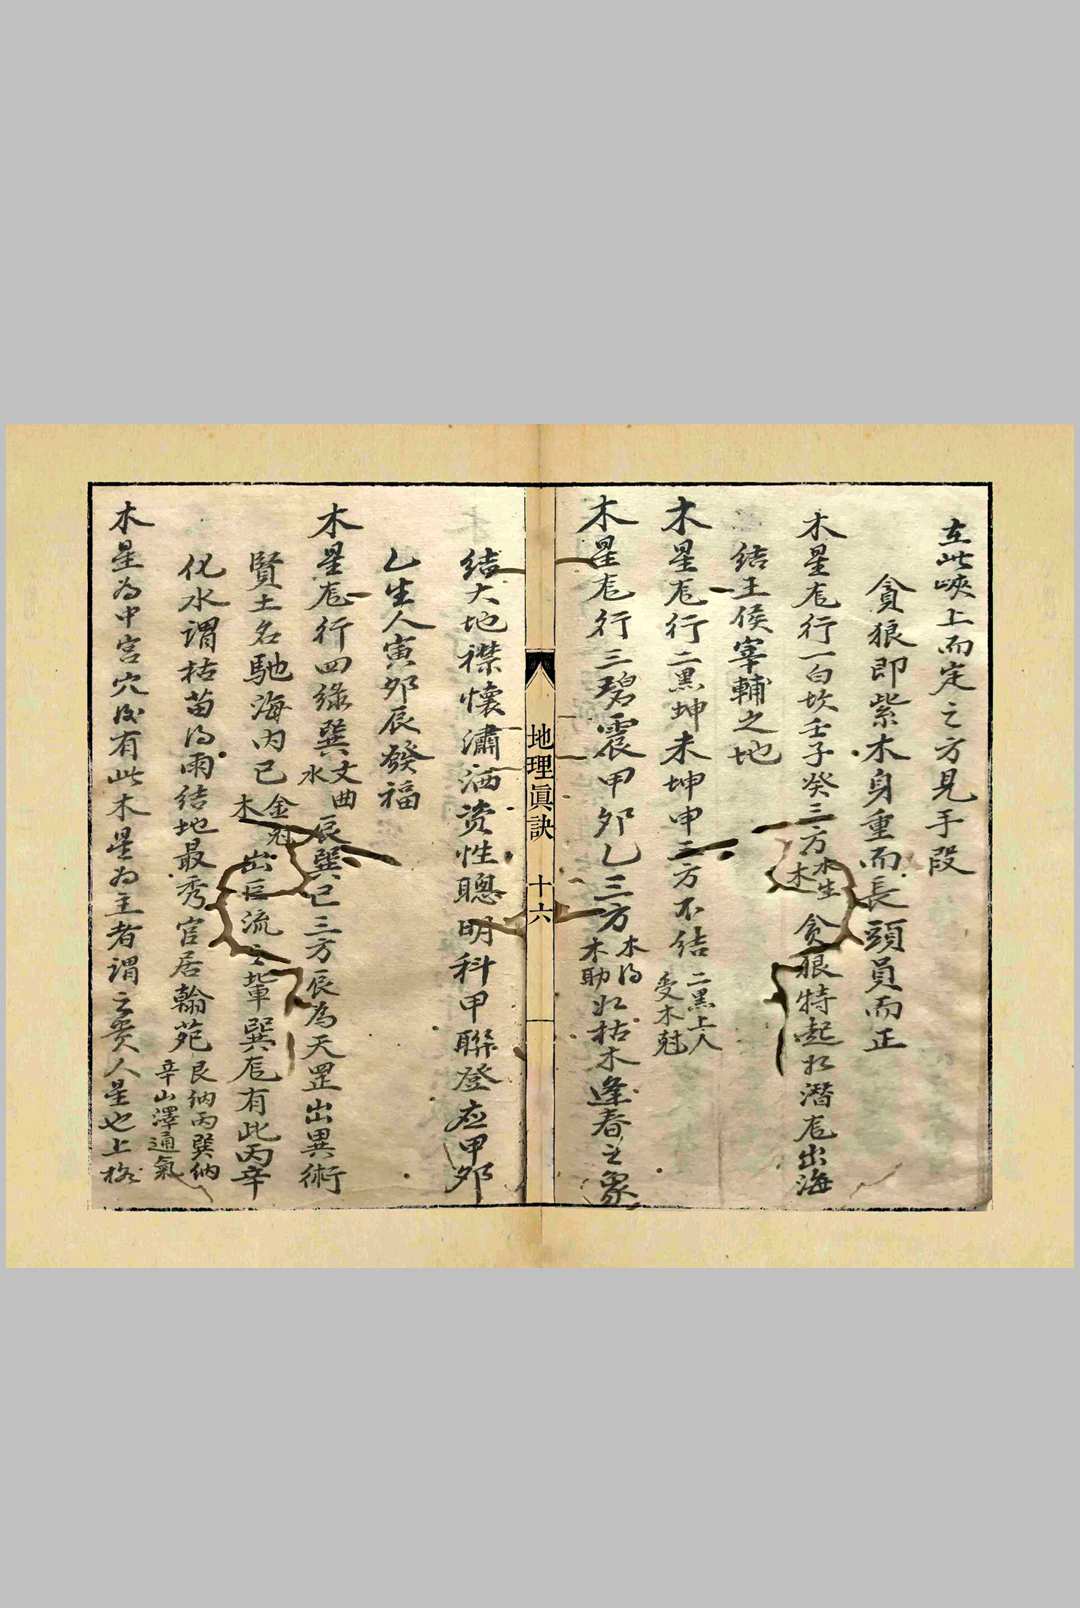 在此峽上而定之方見手段
貪狼即紫木身重而長頭員而正
木星尨行一白坎壬子癸三方水生木貪狼特起如潛尨出海
結王侯宰輔之地
木星尨行二黑坤未坤申三方不結二黑土人受木尅
木星尨行三碧震甲卯乙三方木得木助如枯木逢春之象
地理眞訣 十六
結大地襟懷瀟洒资性聰明科甲聯登应甲卯
乙生人寅卯辰發福
木星尨行四綠巽文曲水辰巽巳三方辰為天罡出異術
賢士名馳海内巳金尅木出巨流之輩巽尨有此丙辛
化水謂枯苗得雨結地最秀官居翰苑艮納丙巽納辛山澤通氣
木星为中宫穴後有此木星为主者謂之贵人星也上格